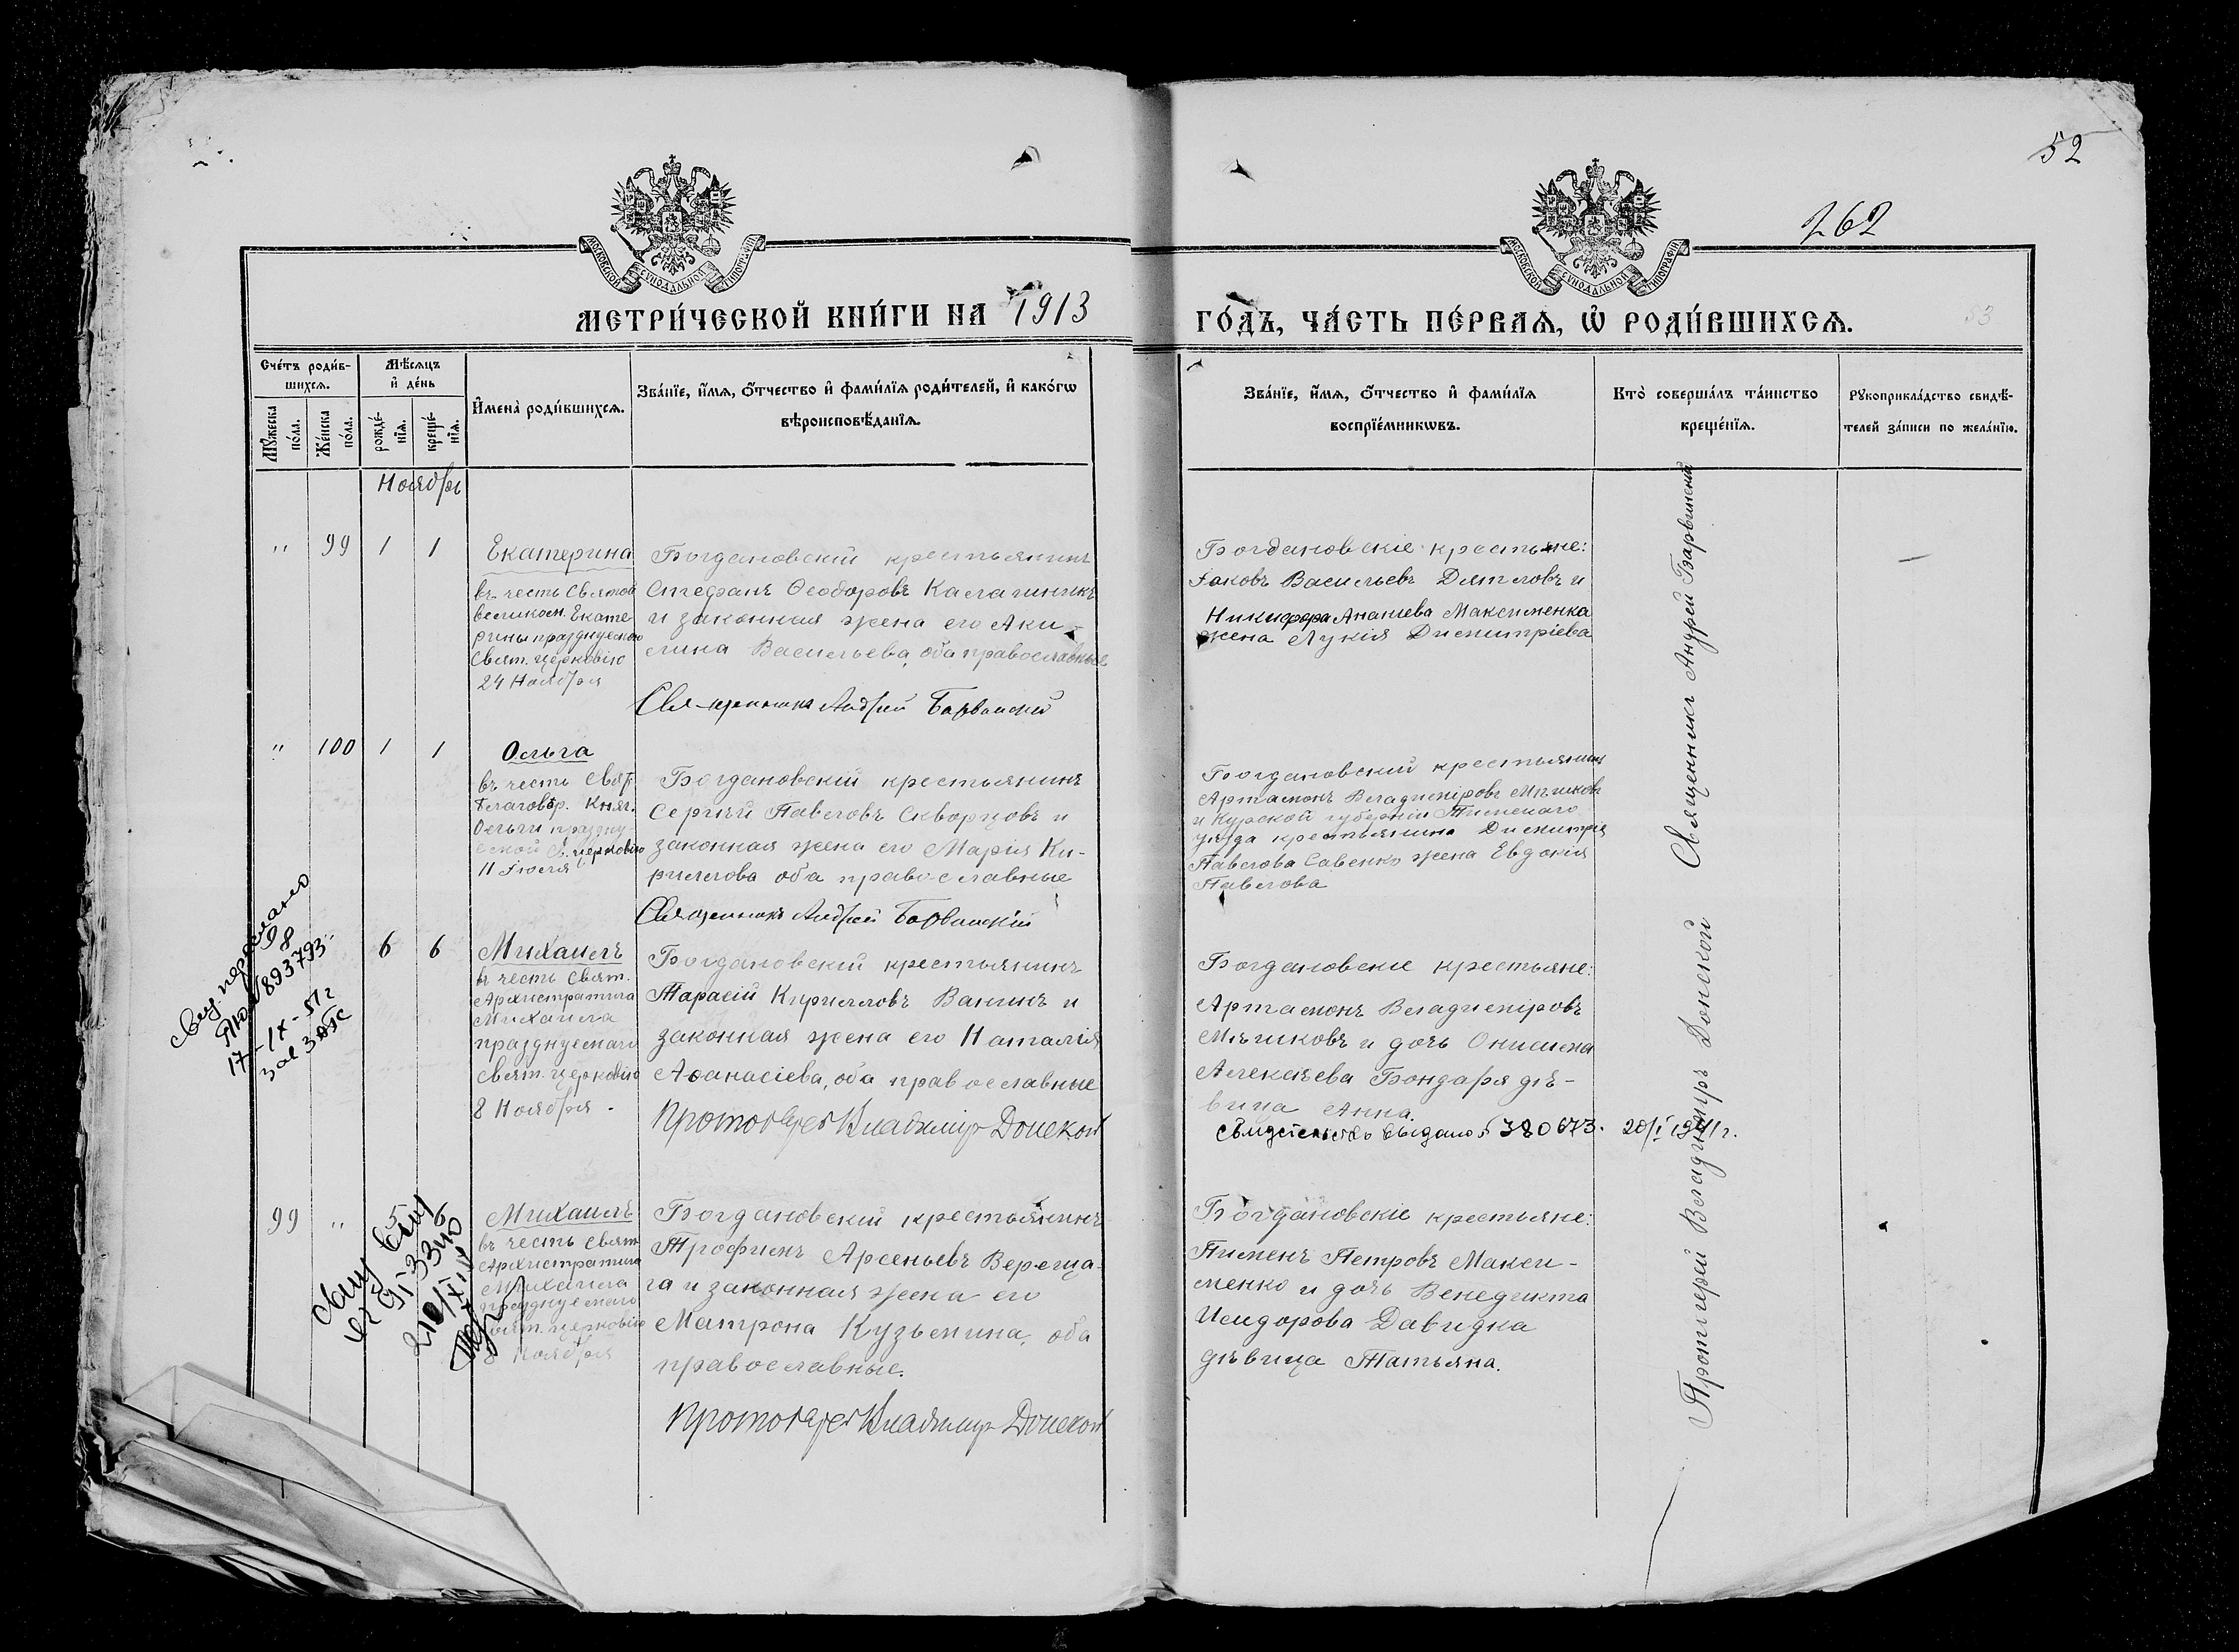 52
262
МОСКОВСКОЙ СѴНОДАЛЬНОЙ ТИПОГРАФІИ
МОСКОВСКОЙ СѴНОДАЛЬНОЙ ТИПОГРАФІИ
МЕТРИ́ЧЕСКОЙ КНИ́ГИ НА 1913
ГО́ДЪ, ЧА́СТЬ ПЕ́РВАѦ, Ѡ҆ РОДИ́ВШИХСѦ.
53
Сче́тъ роди́в-
шихсѧ.
Мѣ́сѧцъ
и҆ де́нь
И҆мена̀ роди́вшихсѧ.
Зва́нїе, и҆́мѧ, ѻ҆́тчество и҆ фами́лїѧ роди́телей, и҆ како́гѡ
вѣроисповѣ́данїѧ.
Мꙋ́жеска
по́ла.
Же́нска
по́ла.
рожде́-
нїѧ.
креще́-
нїѧ.
Зва́нїе, и҆́мѧ, ѻ҆́тчество и҆ фами́лїѧ
воспрїе́мникѡвъ.
Кто̀ соверша́лъ та́инство
креще́нїѧ.
Рꙋкоприкла́дство свидѣ́-
телей за́писи по жела́нїю.
Ноябрь
" 99 1 1
Екатерина
въ честь Святой
великом. Екате
рины празднуемой
Свят. церковію
24 Ноября
Богдановскій крестьянинъ
Стефанъ Ѳеодоровъ
и законная жена его Аки-
лина Васильева, оба православные
Священникъ Андрей Барвинскій
Богдановскіе крестьяне:
Іаковъ Васильевъ Дятловъ и
Никифора Ананіева Максименка
жена Лукія Димитріева
Священникъ Андрей Барвинскій
" 100 1 1
Ольга
въ честь Свят.
благовѣр. Княг.
Ольги праздну
емой С. церковію
11 Іюля
Богдановскій крестьянинъ
Сергѣй Павловъ Скворцовъ и
законная жена его Марія Ки-
риллова оба православные
Священникъ Андрей Барвинскій
Богдановскій крестьянинъ
Артамонъ Владиміровъ Мѣшковъ
и Курской губерніи Тимскаго
уѣзда крестьянина Димитрія
Павлова Савенко жена Евдокія
Павлова
98 " 6 6
Михаилъ
въ честь Свят.
Архистратига
Михаила
празднуемаго
Свят. церковію
8 Ноября.
Богдановскій крестьянинъ
Тарасій Кирилловъ Ванинъ и
законная жена его Наталія
Аѳанасіева, оба православные
Протоіерей Владиміръ Донской
Богдановскіе крестьяне:
Артамонъ Владиміровъ
Мѣшковъ и дочь Онисима
Алексѣева Бондаря дѣ-
вица Анна.
Свидетельство выдано
Протоіерей Владиміръ Донской
17-IX-51г
99 "
Михаилъ
въ честь Свят.
Архистратига
Михаила
празднуемаго
Свят. церковію
8 Ноября
Богдановскій крестьянинъ
Трофимъ Арсеньевъ Вереща-
га и законная жена его
Матрона Кузьмина, оба
православные.
Протоіерей Владиміръ Донской
Богдановскіе крестьяне:
Пименъ Петровъ Макси-
менко и дочь Венедикта
Исидорова Давидка
дѣвица Татьяна.